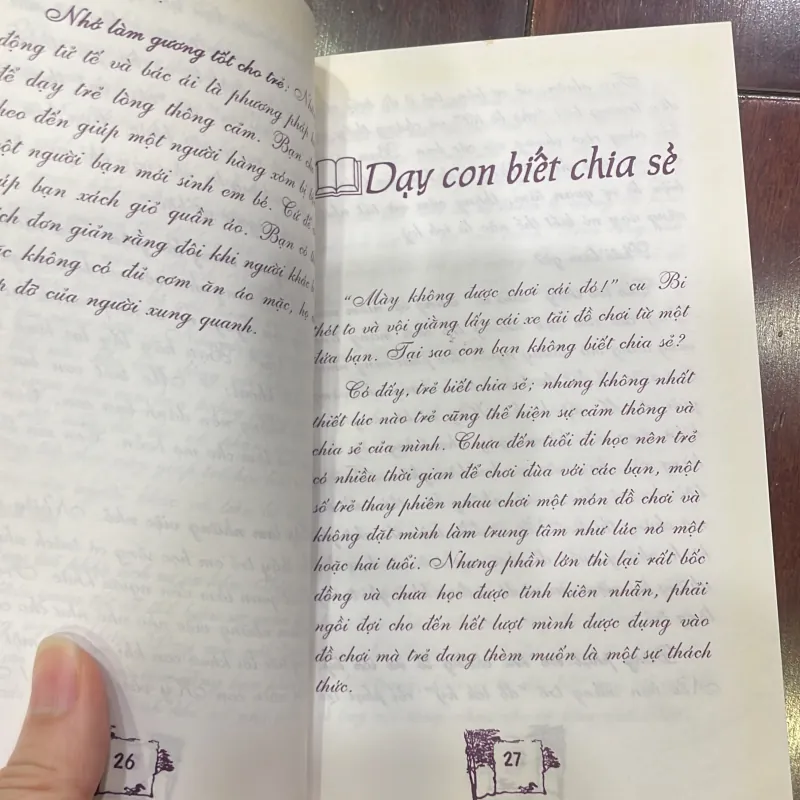 Nhớ làm gương tốt cho trẻ:
động tử tế và bác ái là phương pháp
để dạy trẻ lòng thông cảm. Bạn
đến giúp một người hàng xóm bị
một người bạn mới sinh em bé. Cứ để
bạn xách giỏ quần áo. Bạn có
đơn giản rằng đôi khi người khác
không có đủ cơm ăn áo mặc, họ
đỡ của người xung quanh.
26
Dạy con biết chia sẻ
“Mày không được chơi cái đó!” cu Bi
hét to và vội giằng lấy cái xe tải đồ chơi từ một
đứa bạn. Tại sao con bạn không biết chia sẻ?
Có đấy, trẻ biết chia sẻ; nhưng không nhất
thiết lúc nào trẻ cũng thể hiện sự cảm thông và
chia sẻ của mình. Chưa đến tuổi đi học nên trẻ
có nhiều thời gian để chơi đùa với các bạn, một
số trẻ thay phiên nhau chơi một món đồ chơi và
không đặt mình làm trung tâm như lúc nó một
hoặc hai tuổi. Nhưng phần lớn thì lại rất bốc
đồng và chưa học được tính kiên nhẫn, phải
ngồi đợi cho đến hết lượt mình được đụng vào
đồ chơi mà trẻ đang thèm muốn là một sự thách
thức.
27